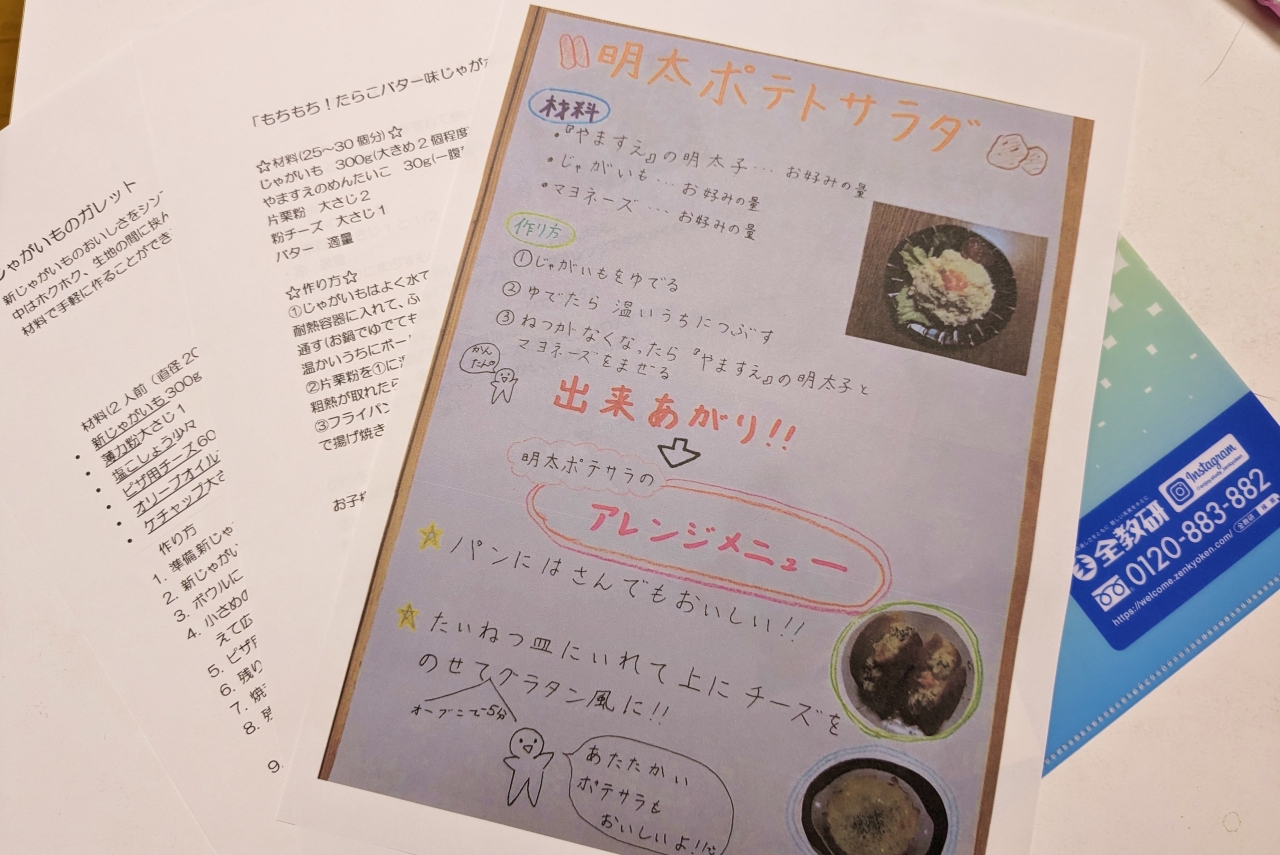 明太ポテトサラダ
材料
・『やますえ』の明太子… お好みの量
・じゃがいも… お好みの量
・マヨネーズ … お好みの量
作り方
①じゃがいもをゆでる
②ゆでたら 温いうちにつぶす
③ねつがなくなったら『やますえ』の明太子と
マヨネーズをまぜる
かん
たん
出来あがり!!
明太ポテサラの
アレンジメニュー
☆パンにはさんでもおいしい!!
☆たいねつ皿にいれて上にチーズを
のせてグラタン風に!!
オーブンで5分
あたたかい
ポテサラも
おいしいよ!!
「もちもち！たらこバター味じゃが
☆材料(25～30個分)☆
じゃがいも 300g(大きめ2個程度
やますえのめんたいこ 30g(一腹
片栗粉 大さじ2
粉チーズ 大さじ1
バター 適量
☆作り方☆
①じゃがいもはよく水で
耐熱容器に入れて、ふ
通す(お鍋でゆでても
温かいうちにボー
②片栗粉を①に
粗熱が取れたら
③フライパン
で揚げ焼き
お子
じゃがいものガレット
新じゃがいものおいしさをシン
中はホクホク、生地の間に挟ん
材料で手軽に作ることができ
材料(2人前（直径20
• 新じゃがいも300g
• 薄力粉大さじ1
• 塩こしょう少々
• ピザ用チーズ60
• オリーブオイル
• ケチャップ大さ
作り方
1. 準備.新じゃ
2. 新じゃがい
3. ボウルに
4. 小さめの
えて広
5. ピザ用
6. 残り
7. 焼
8. 残
9.
全教研
Instagram
0120-883-882
https://welcome.zenkyoken.com/
全教研 検索